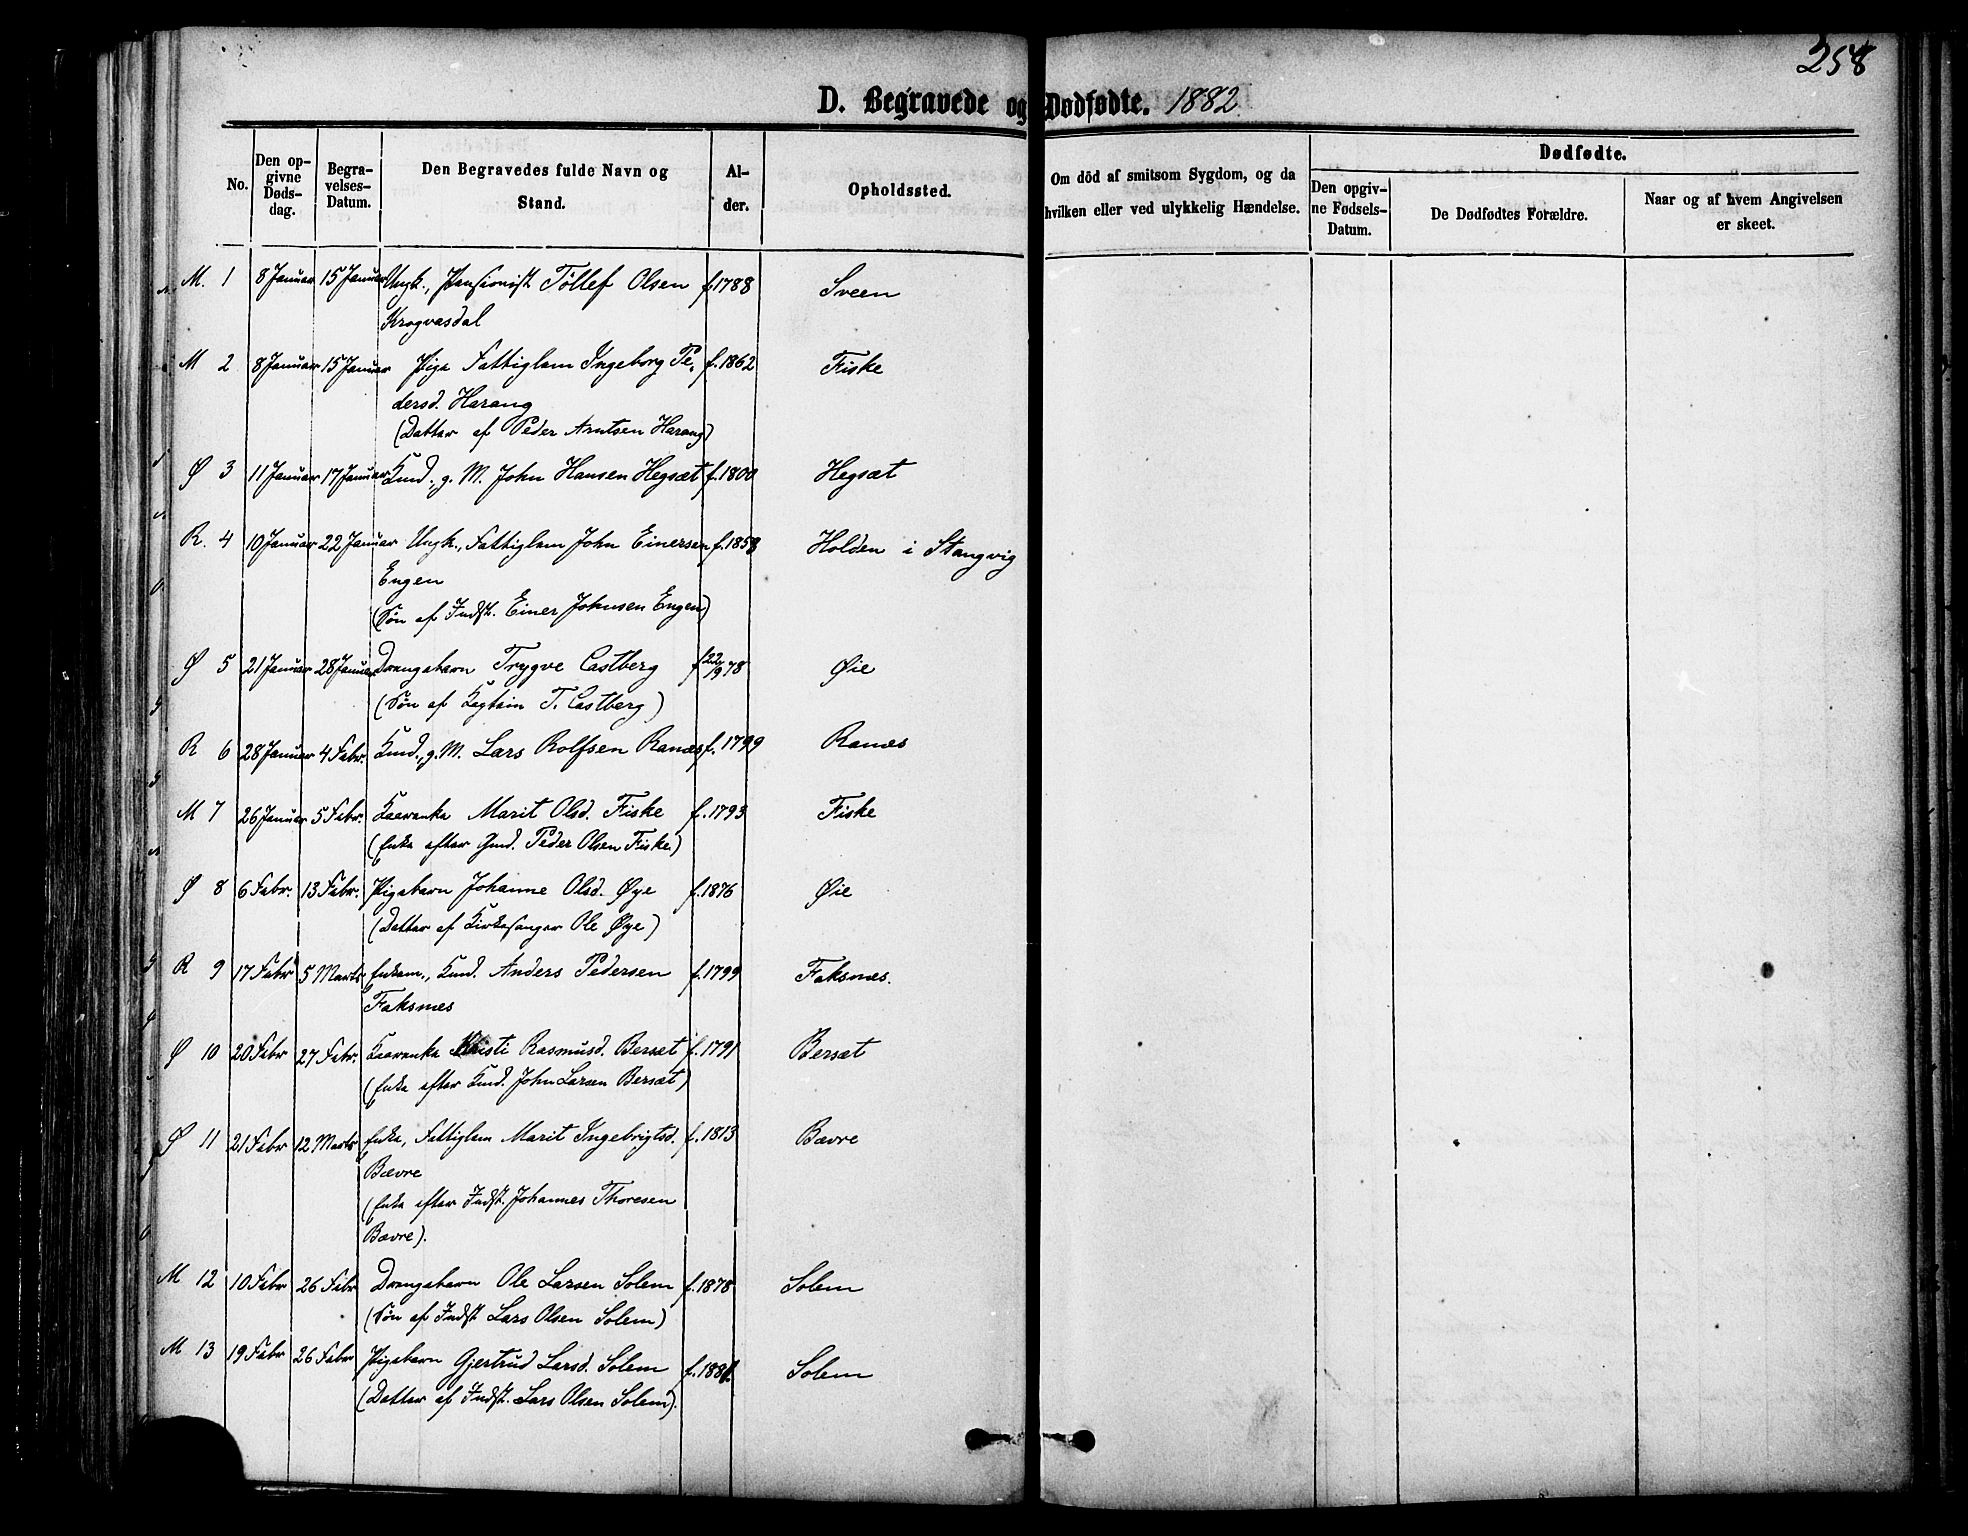 258
D. Begravede og Dødfødte. 1882
No.
Den opgivne Dødsdag.
Begravelses-Datum.
Den Begravedes fulde Navn og Stand.
Alder.
Opholdssted.
Om död af smitsom Sygdom, og da hvilken eller ved ulykkelig Hændelse.
Dødfødte.
Den opgivne Fødsels-Datum.
De Dødfødtes Forældre.
Naar og af hvem Angivelsen er skeet.
M. 1 8 Januar 15 Januar Ungk., Pensionist Töllef Olsen f. 1788 Sveen
Krogvasdal
M 2 8 Januar 15 Januar Pige Fattiglem Ingeborg Pe- f. 1862 Fiske
dersd. Harang
(Datter af Peder Arntsen Harang)
Ø 3 11 Januar 17 Januar Kaad., g. M. John Hansen Hegsæt f. 1800 Hegsæt
R. 4 10 Januar 22 Januar Ungk., Fattiglem John Einersen f. 1858 Holden i Stangvig
Engen
(Søn af Indst. Einer Johnsen Engen)
Ø 5 21 Januar 28 Januar Drengebarn Trygve Castberg f 22/9 78 Øie
(Søn af Kaptain T. Castberg)
R 6 28 Januar 4 Febr. Kaad., g. M. Lars Rolfsen Ranæs f. 1799 Ranæs
M 7 26 Januar 5 Febr. Kaarenke Marit Olsd. Fiske f. 1793 Fiske
(Enke efter Gmd. Peder Olsen Fiske)
Ø 8 6 Febr. 13 Febr. Pigebarn Johanne Olsd. Øye f. 1876 Øie
(Datter af Kirkesanger Ole Øye)
R 9 17 Febr 5 Marts Enkem., Kaad. Anders Pedersen f. 1799 Faksnes.
Faksnes
Ø 10 20 Febr 27 Febr. Kaarenke Kristi Rasmusd. Bersæt f. 1791 Bersæt
(Enke efter Kaad. John Larsen Bersæt)
Ø 11 21 Febr 12 Marts Enke, Fattiglem Marit Ingebrigtsd. f. 1813 Bævre
Bævre
(Enke efter Indst. Johannes Thoresen
Bævre).
M 12 10 Febr 26 Febr Drengebarn Ole Larsen Solem f. 1878 Solem
(Søn af Indst Lars Olsen Solem)
M 13 19 Febr 26 Febr Pigebarn Gjertrud Larsd. Solem f. 1881. Solem
(Datter af Indst. Lars Olsen Solem).